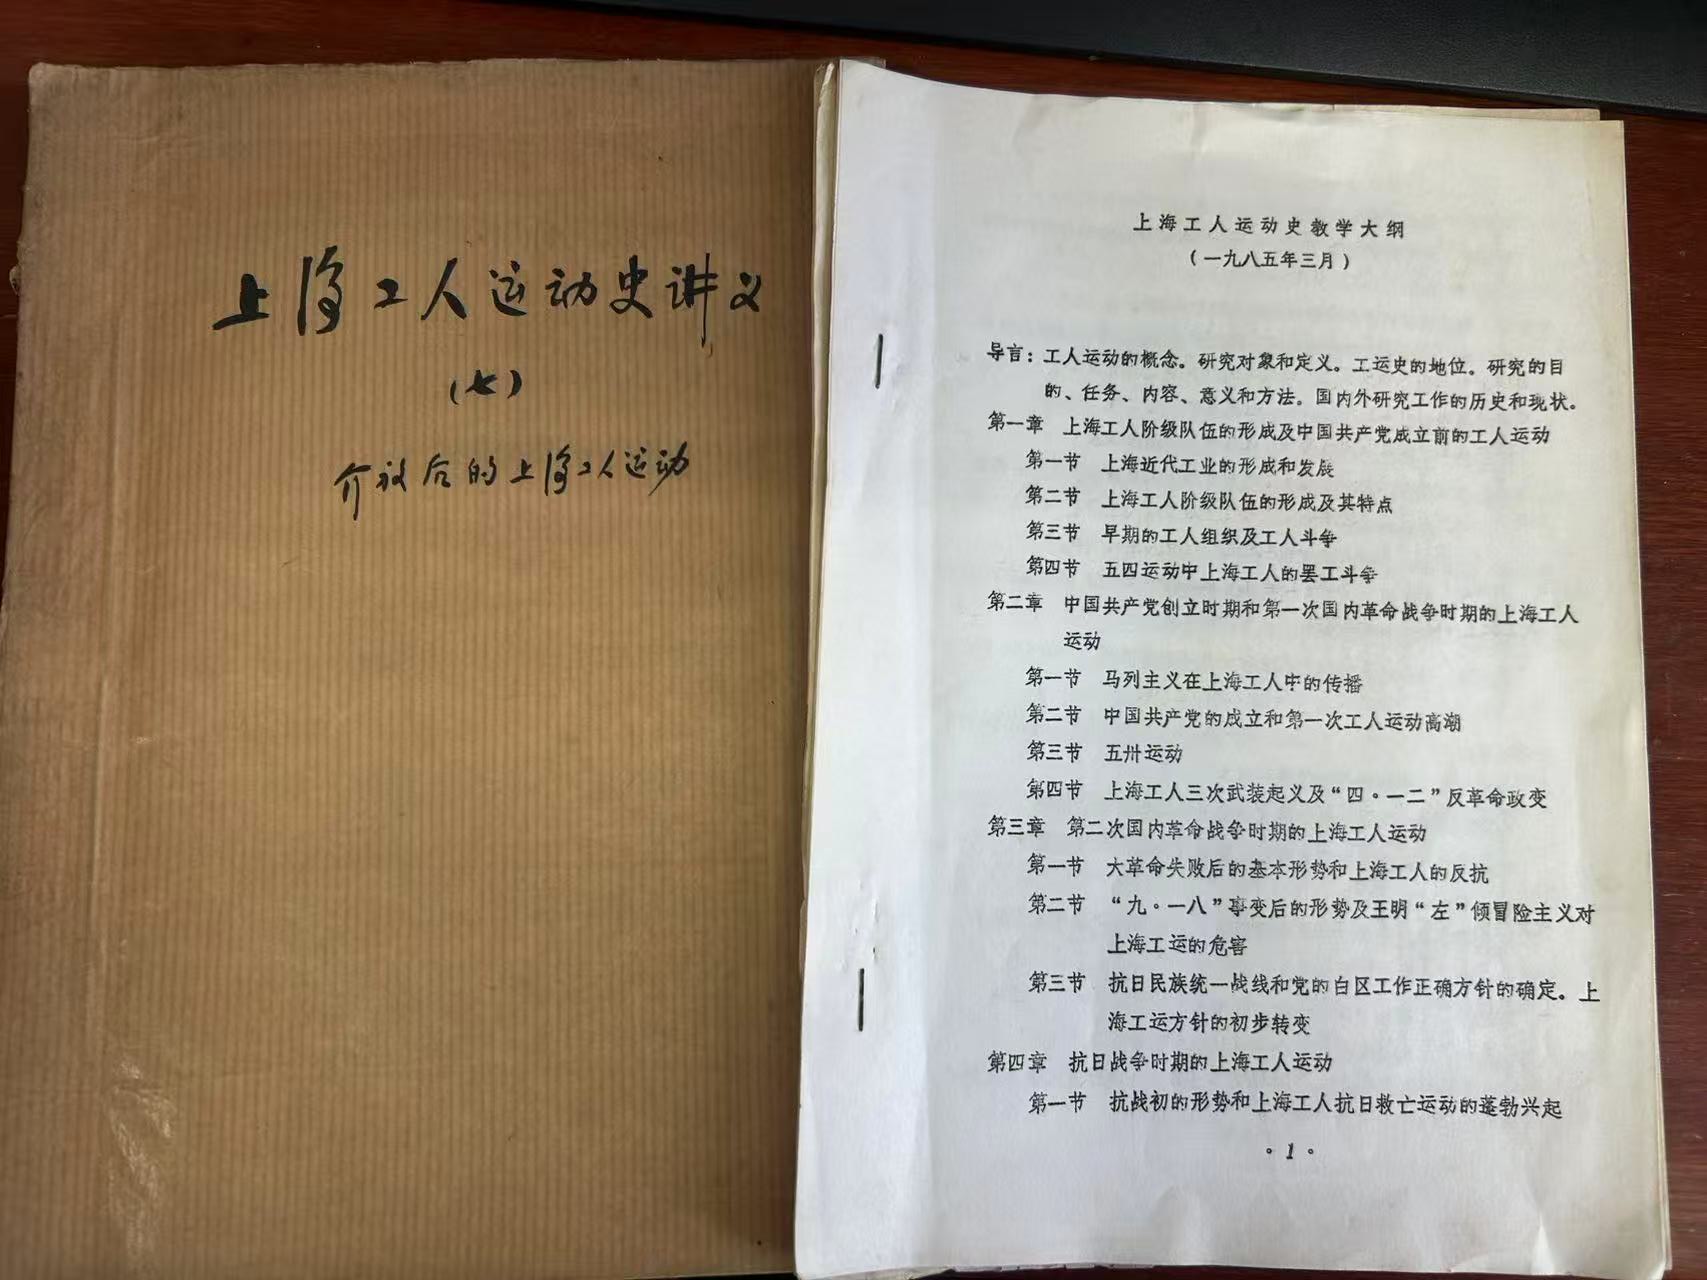 上海工人运动史讲义
(七)
介放后的上海工人运动
上海工人运动史教学大纲
(一九八五年三月)
导言：工人运动的概念。研究对象和定义。工运史的地位。研究的目
的、任务、内容、意义和方法。国内外研究工作的历史和现状。
第一章 上海工人阶级队伍的形成及中国共产党成立前的工人运动
第一节 上海近代工业的形成和发展
第二节 上海工人阶级队伍的形成及其特点
第三节 早期的工人组织及工人斗争
第四节 五四运动中上海工人的罢工斗争
第二章 中国共产党创立时期和第一次国内革命战争时期的上海工人
运动
第一节 马列主义在上海工人中的传播
第二节 中国共产党的成立和第一次工人运动高潮
第三节 五卅运动
第四节 上海工人三次武装起义及“四·一二”反革命政变
第三章 第二次国内革命战争时期的上海工人运动
第一节 大革命失败后的基本形势和上海工人的反抗
第二节 “九·一八”事变后的形势及王明“左”倾冒险主义对
上海工运的危害
第三节 抗日民族统一战线和党的白区工作正确方针的确定。上
海工运方针的初步转变
第四章 抗日战争时期的上海工人运动
第一节 抗战初的形势和上海工人抗日救亡运动的蓬勃兴起
·1·